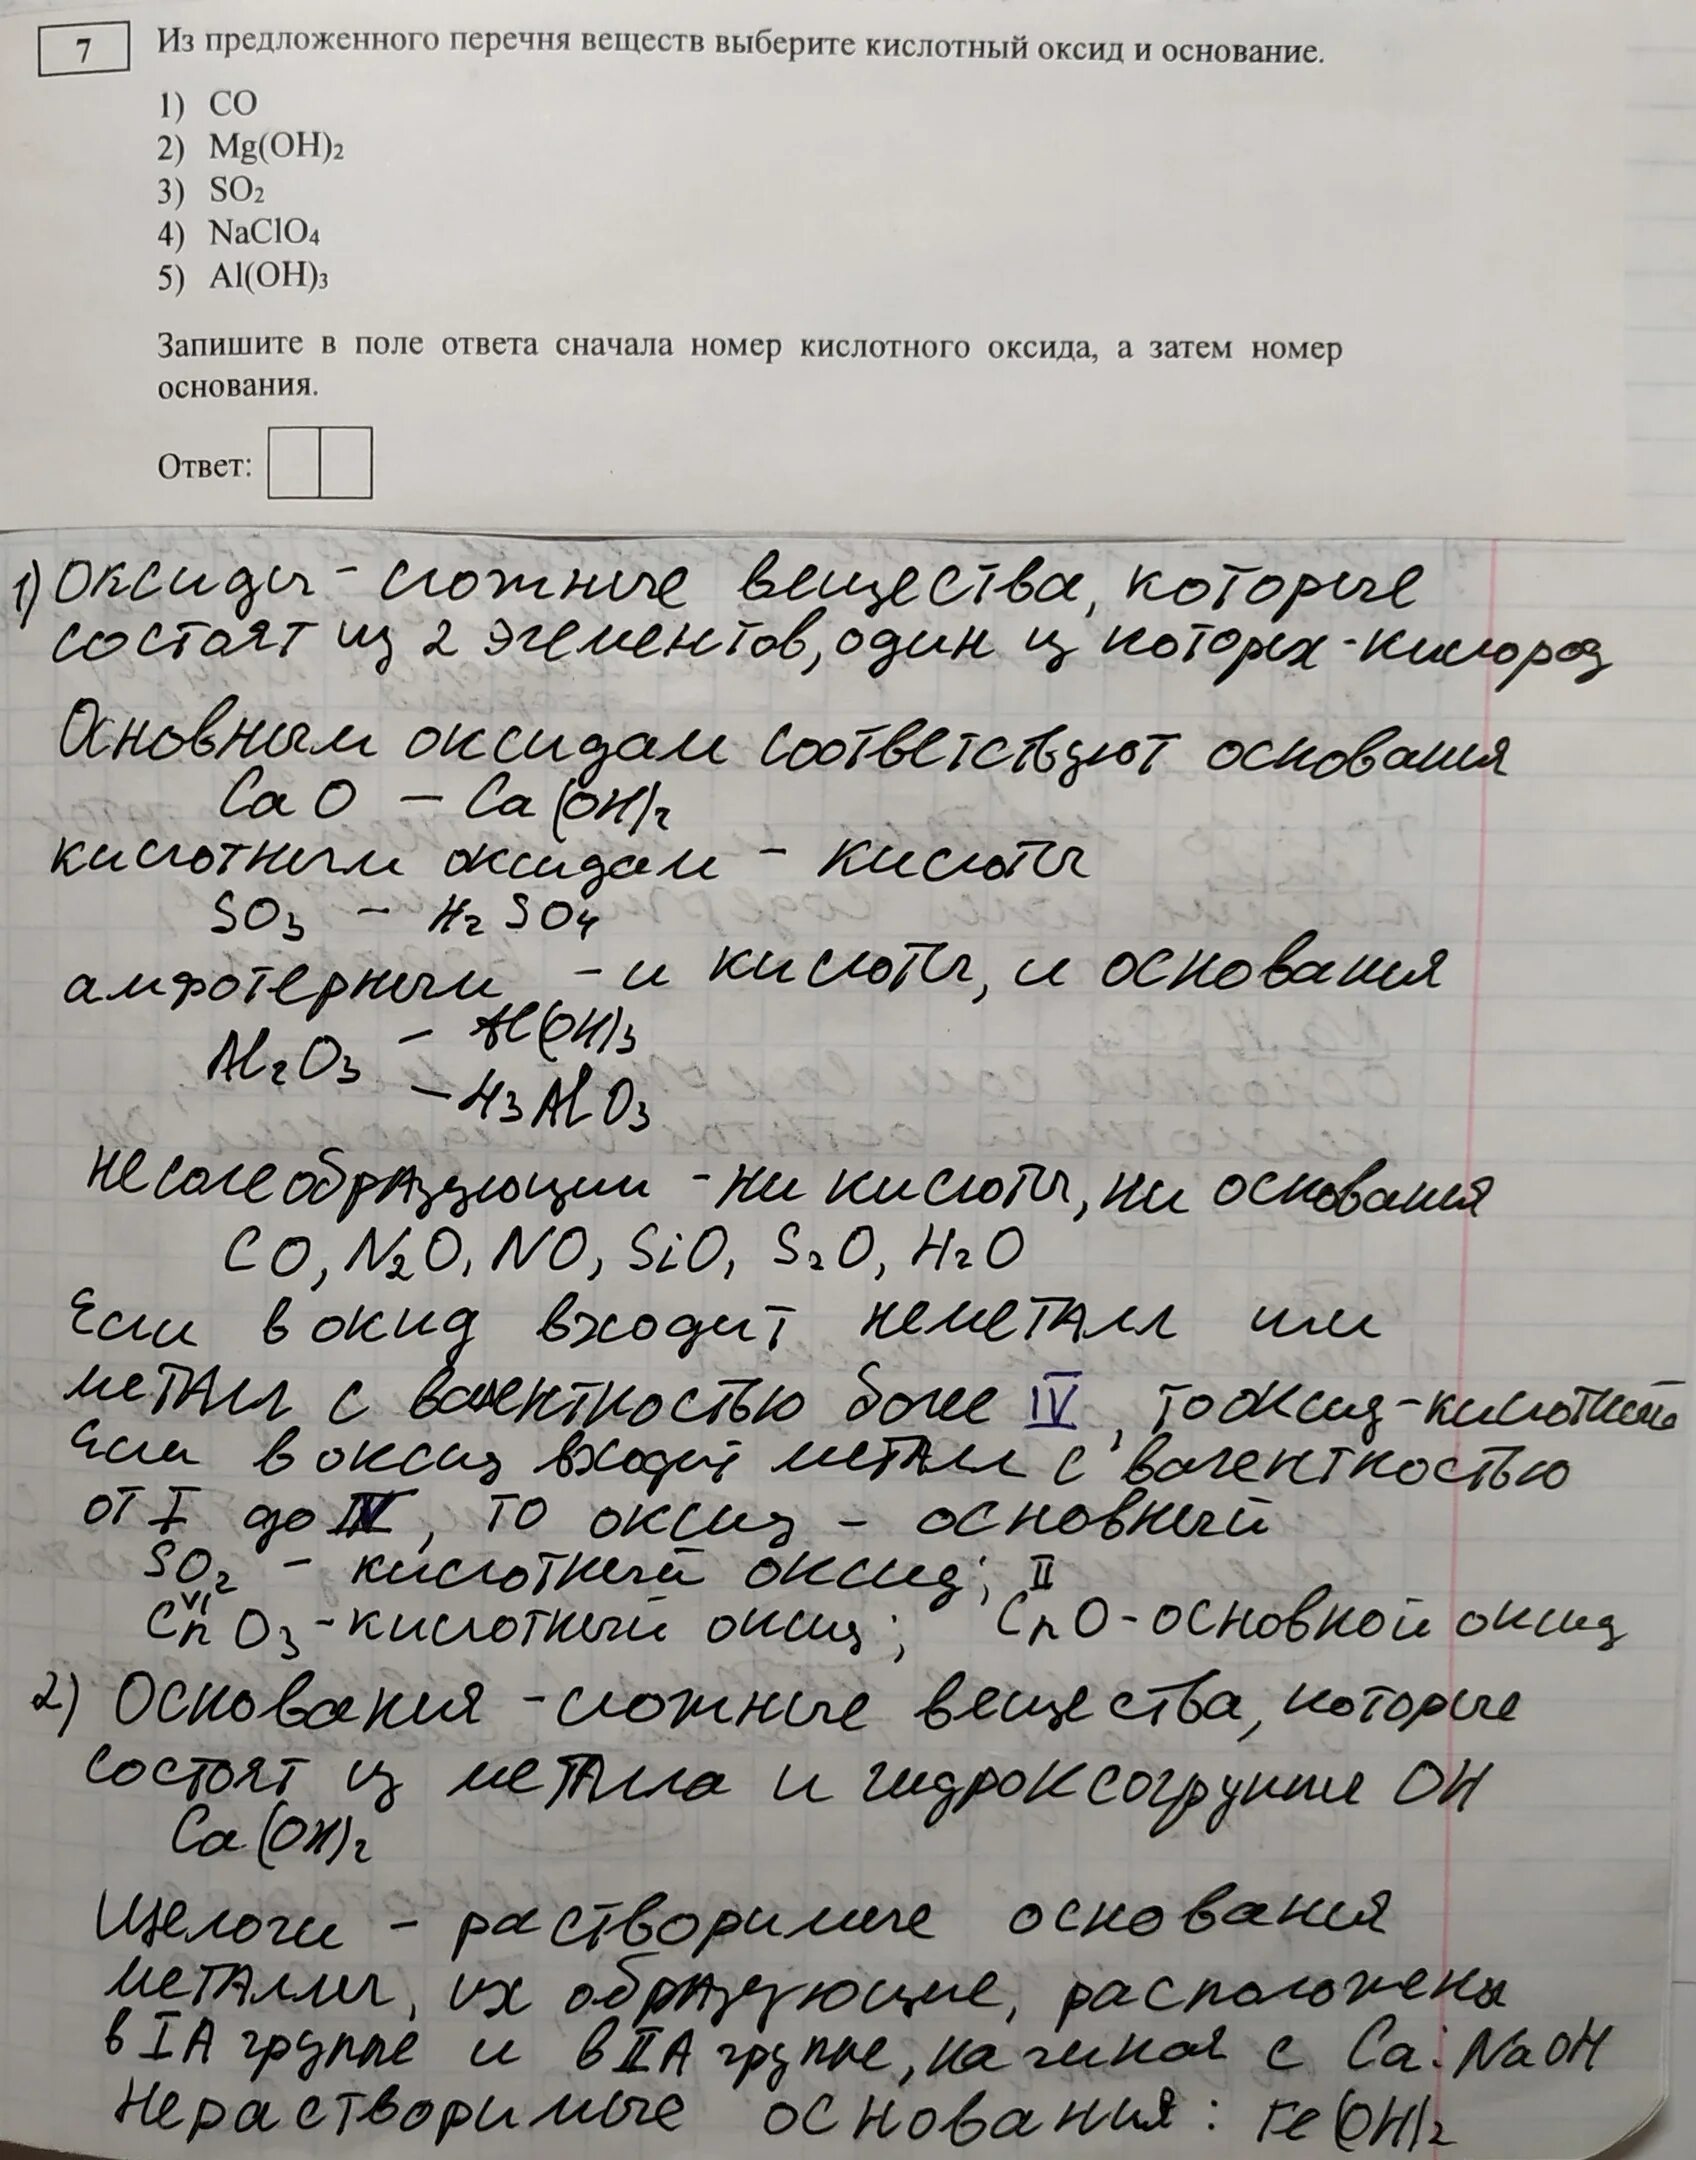 7 Из предложенного перечня веществ выберите кислотный оксид и основание.
1) CO
2) Mg(OH)₂
3) SO₂
4) NaClO₄
5) Al(OH)₃
Запишите в поле ответа сначала номер кислотного оксида, а затем номер
основания.
Ответ:
1) Оксиды - сложные вещества, которые
состоят из 2 элементов, один из которых - кислород
Основным оксидам соответствуют основания
CaO – Ca(OH)₂
кислотным оксидам – кислоты
SO₃ – H₂SO₄
амфотерным – и кислоты, и основания
Al₂O₃ – Al(OH)₃
– H₃AlO₃
Несолеобразующим - ни кислоты, ни основания
CO, N₂O, NO, SiO, S₂O, H₂O
Если в окид входит неметалл или
металл с валентностью более IV, то оксид - кислотный
Если в оксид входит металл с валентностью
от I до IV, то оксид – основный
SO₂ – кислотный оксид;
VI II
CrO₃ - кислотный оксид; CrO - основной оксид
2) Основания - сложные вещества, которые
состоят из металла и гидроксогруппы OH
Ca(OH)₂
Щелочи – растворимые основания
металлы, их образующие, расположены
в IА группе и в IIА группе, начиная с Ca: NaOH
Нерастворимые основания: Fe(OH)₂